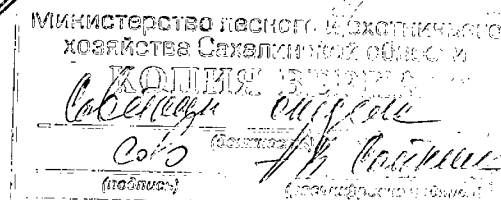 Министерство лесного и охотничьего
хозяйства Сахалинской области
КОПИЯ ВЕРНА
Советник отдела
(должность)
(подпись) (расшифровка подписи)